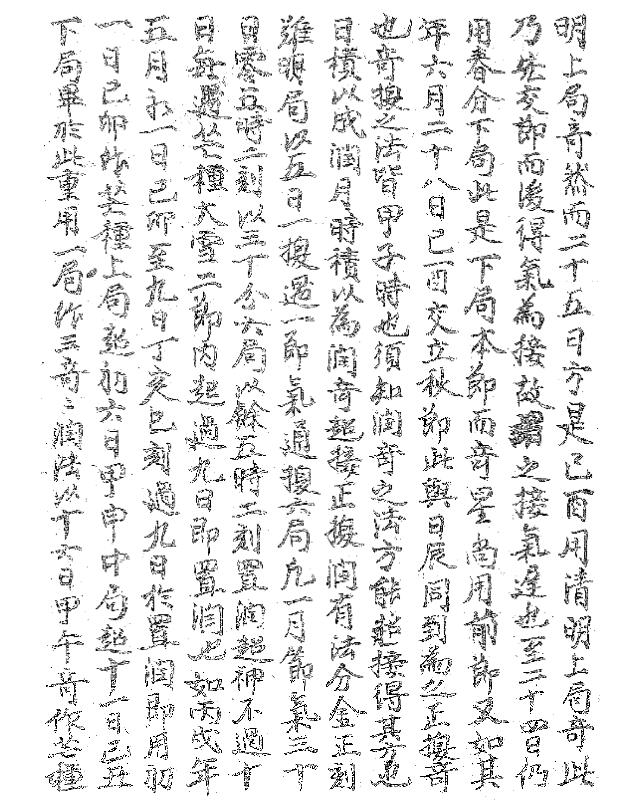 明上局奇然而二十五日方是己酉用清明上局奇此
乃先交節而後得氣為接故謂之接氣遲也至二十四日仍
用春分下局此是下局本節而奇星尚用前節又如其
年六月二十八日己酉交立秋節此與日辰同到為之正換奇
也奇換之法皆甲子時也須知潤奇之法方能超接得其方也
日積以成潤月時積以為潤奇超接正換潤有法分金正刻
難明局以五日一換過一節氣通換六局凡一月節氣三十
日零五時二刻以三十分六局以餘五時二刻置潤超神不過十
日每遇芒種大雪二節內超過九日即置潤也如丙戌年
五月初一日己卯至九日丁亥巳刻過九日於置潤即用初
一日己卯作芒種上局超初六日甲申中局超十一日己丑
下局畢於此重用一局作三奇之潤法以十六日甲午奇作芒種